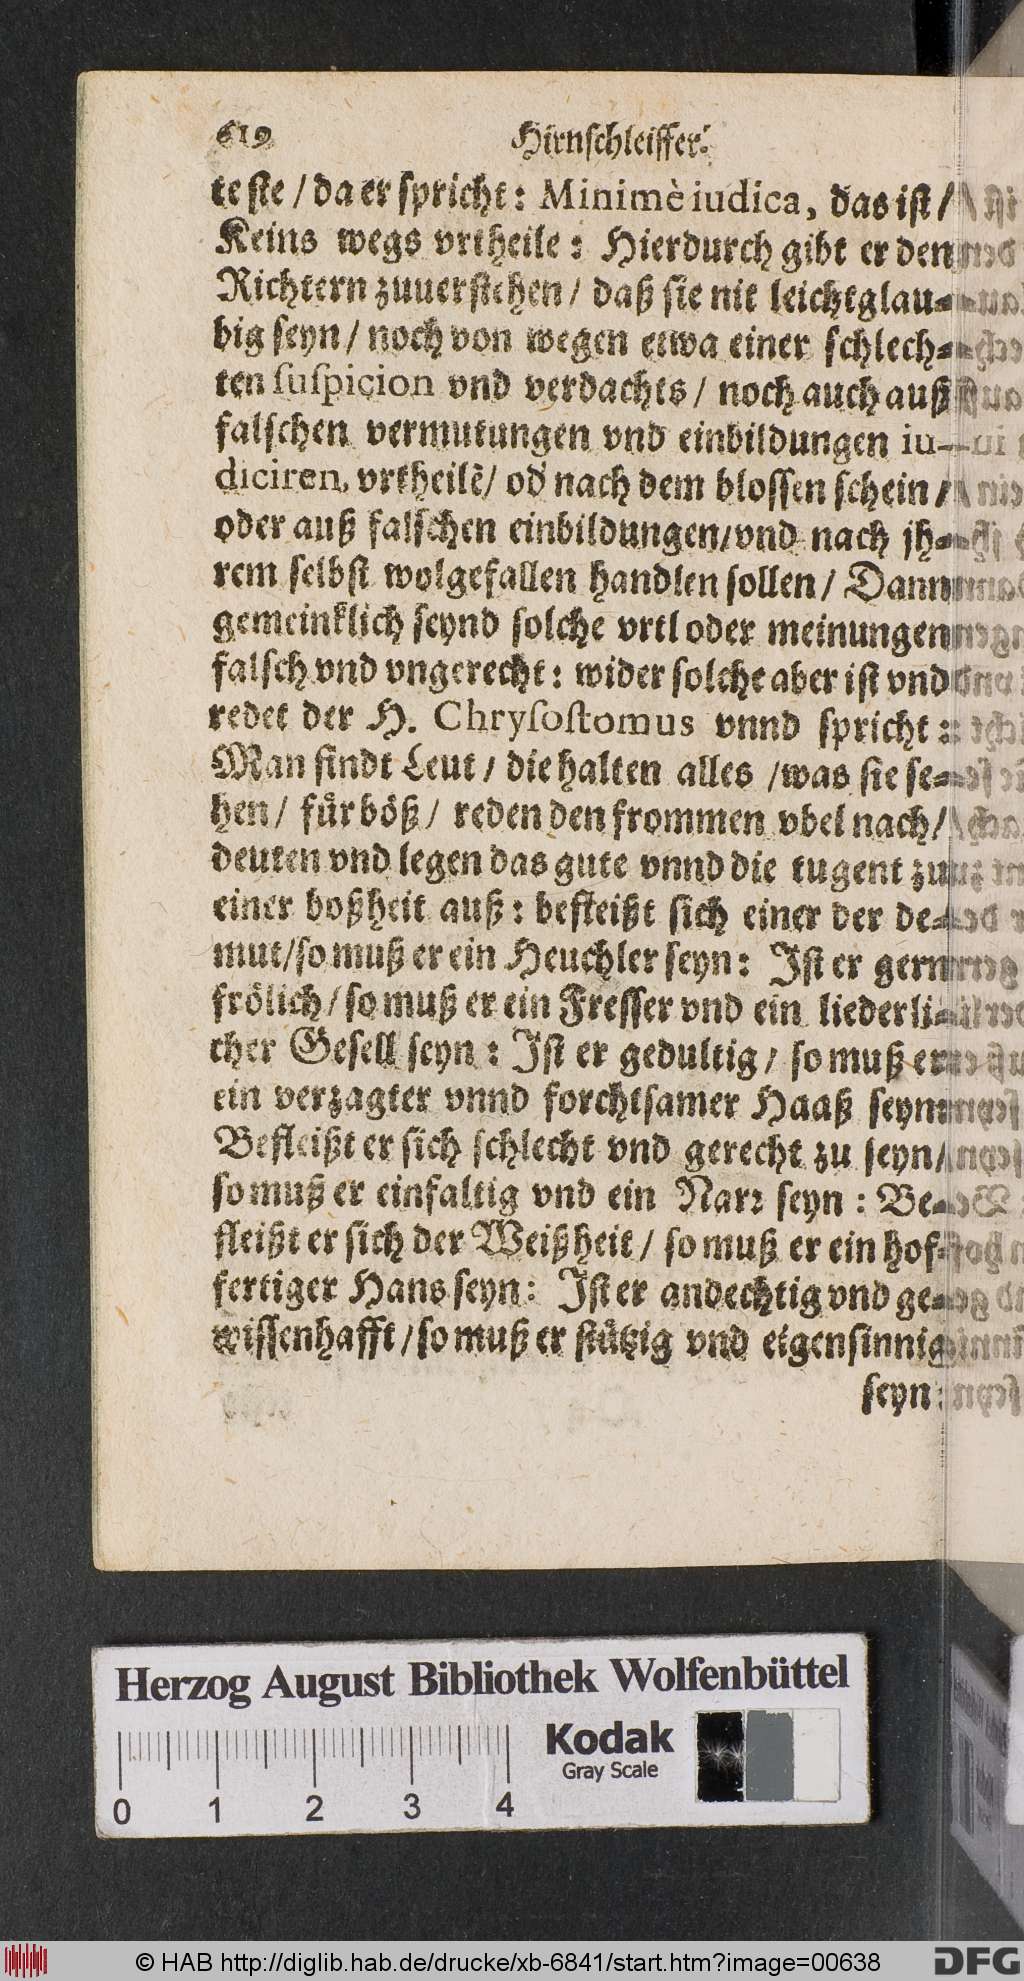 619 Hirnschleiffer.
te sie / da er spricht: Minimè iudica, das ist /
Keins wegs vrtheile: Hierdurch gibt er den
Richtern zuuerstehen / daß sie nit leichtglau-
big seyn / noch von wegen etwa einer schlech-
ten suspicion vnd verdachts / noch auch auß
falschen vermutungen vnd einbildungen iu-
diciren, vrtheilẽ / od' nach dem blossen schein /
oder auß falschen einbildungen / vnd nach jh-
rem selbst wolgefallen handlen sollen / Dann
gemeinklich seynd solche vrtl oder meinungen
falsch vnd vngerecht: wider solche aber ist vnd
redet der H. Chrysostomus vnnd spricht:
Man findt Leut / die halten alles / was sie se-
hen / für böß / reden den frommen vbel nach /
deuten vnd legen das gute vnnd die tugent zu
einer boßheit auß: befleißt sich einer der de-
mut / so muß er ein Heuchler seyn: Ist er gern
frölich / so muß er ein Fresser vnd ein liederli-
cher Gesell seyn: Ist er gedultig / so muß er
ein verzagter vnnd forchtsamer Haaß seyn
Befleißt er sich schlecht vnd gerecht zu seyn /
so muß er einfaltig vnd ein Narr seyn: Be-
fleißt er sich der Weißheit / so muß er ein hof-
fertiger Hans seyn: Ist er andechtig vnd ge-
wissenhafft / so muß er stützig vnd eigensinnig
seyn:
Herzog August Bibliothek Wolfenbüttel
Kodak
Gray Scale
0 1 2 3 4
© HAB http://diglib.hab.de/drucke/xb-6841/start.htm?image=00638
DFG